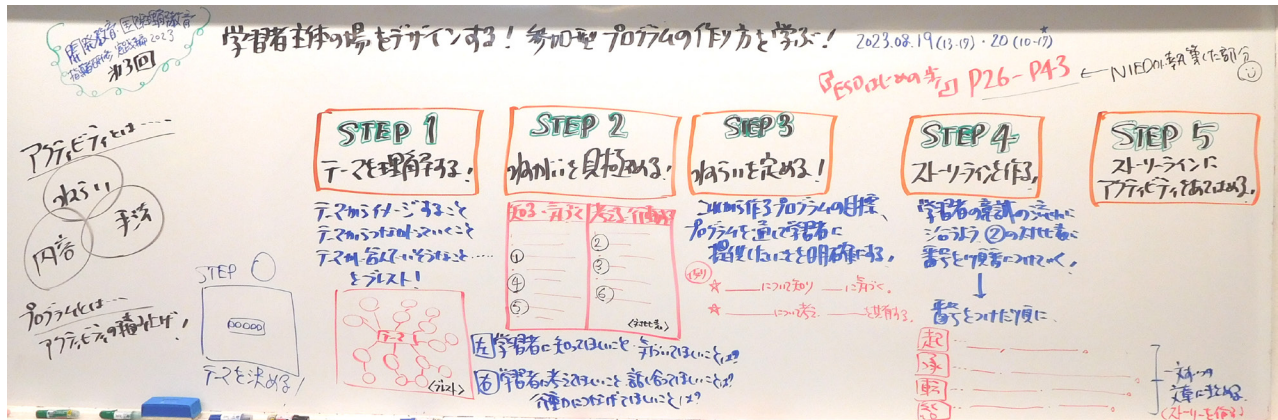 開発教育・国際理解教育
指導者研修 実践編2023
第3回
学習者主体の場をデザインする! 参加型プログラムの作り方を学ぶ!
2023.08.19(13-17)・20(10-17)
『ESDはじめの一歩』P26-P43 ← NIEDが執筆した部分
アクティビティとは……
ねらい
手法
内容
プログラムとは…
アクティビティの積み上げ!
STEP 0
テーマを決める!
STEP 1
テーマを理解する!
テーマからイメージすること
テーマからつながっていくこと
テーマが含んでいそうなこと……
をブレスト!
テーマ
<ブレスト>
STEP 2
ねがいを見極める!
知る・気づく
考える・行動する
①
②
③
④
⑤
⑥
<対比表>
左 学習者に知ってほしいこと 気づいてほしいことは?
右 学習者に考えてほしいこと 話し合ってほしいことは?
行動につなげてほしいことは?
STEP 3
ねらいを定める!
これから作るプログラムの目標、
プログラムを通して学習者に
提供したいことを明確にする。
☆ ——について知り ——に気づく。
☆ ——について考え ——を共有する。
STEP 4
ストーリーラインを作る!
学習者の意識の流れに
沿うよう②の対比表に
番号を順番につけていく。
↓
番号をつけた順に
起
承
転
文章にまとめる
(ストーリーを作る)
STEP 5
ストーリーラインに
アクティビティをあてはめる!